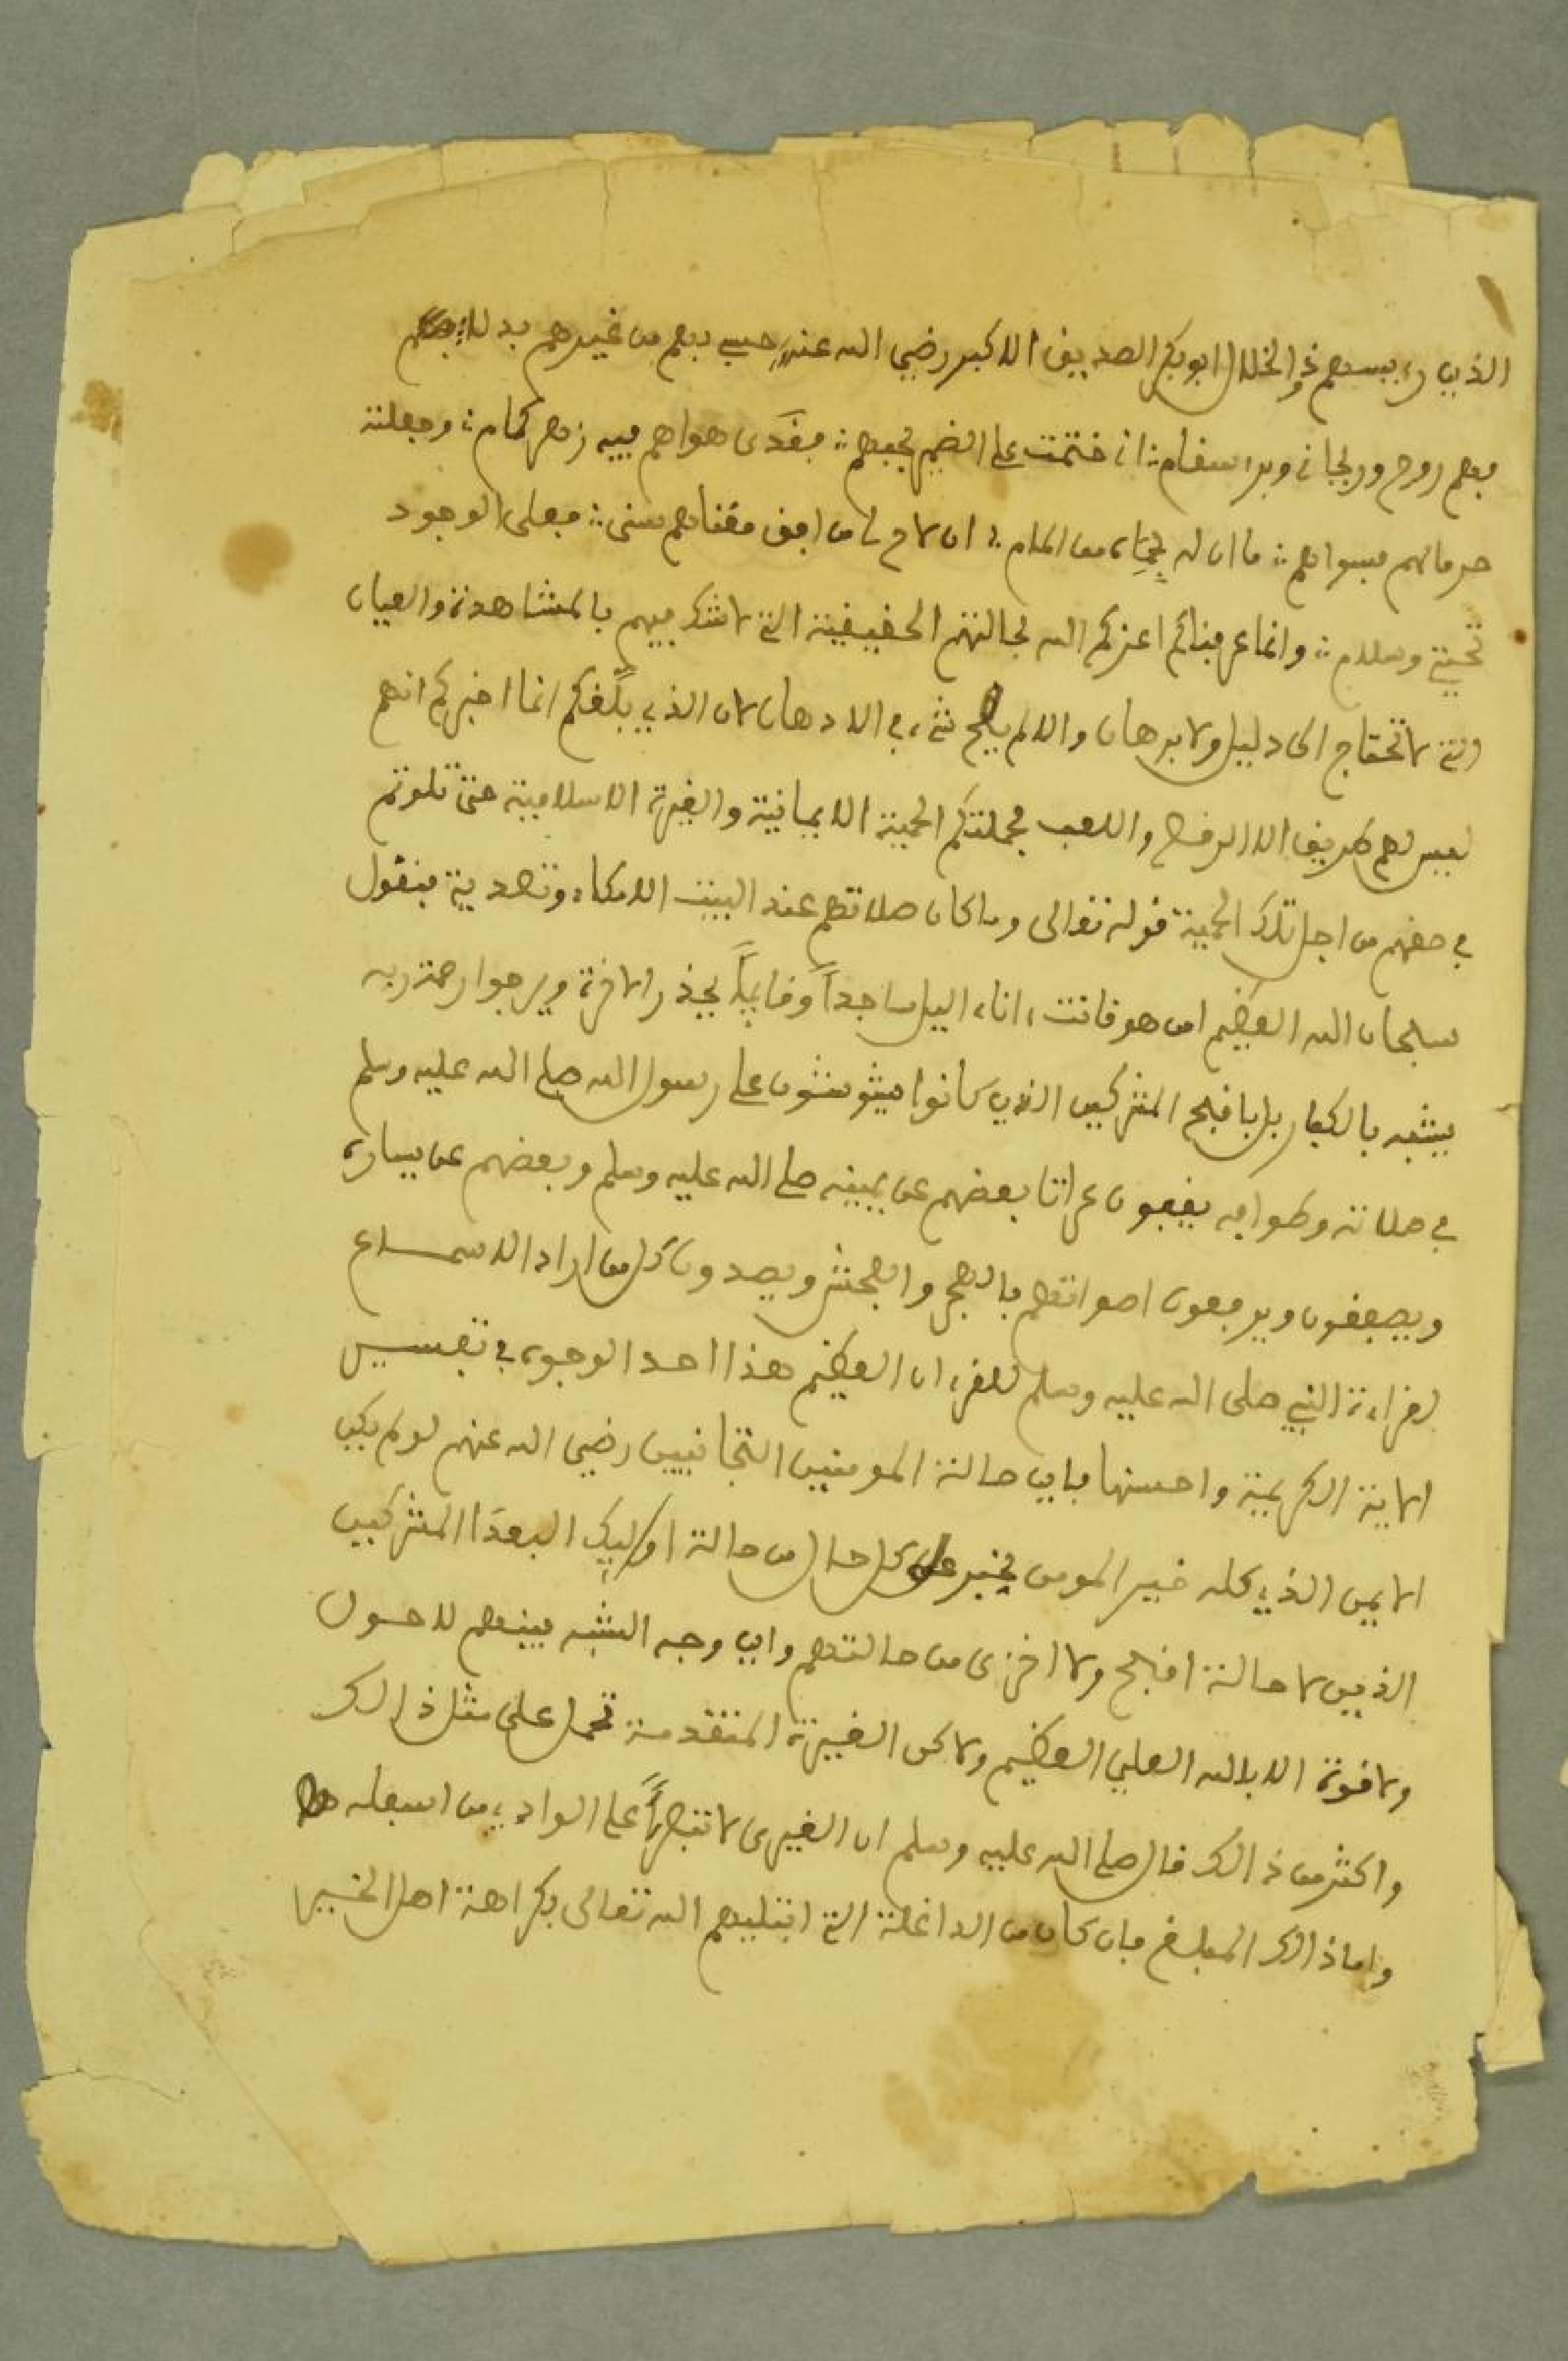 الذين رءيسهم ذو الخلال ابو بكر الصديق الاكبر رضي الله عنه حسبي بهم من غيرهم بدلا
بهم روح وريحاني وبرء سقام ∴ اني ختمت على الضمير بحبهم ∴ فغدى هواهم فيه زهر كمام ∴ وجعلته
حرما لهم فسواهم ∴ ما ان له بحماه من المام ∴ ان لاح لي من افق مغناهم سنى ∴ فعلى الوجود
تحية وسلام ∴ وانما عرفناكم اعزكم الله بحالتهم الحقيقية التي لا شك فيهم بالمشاهدة والعيان
التي لا تحتاج الى دليل ولا برهان والا لم يصح شيء في الاذهان لان الذي بلغكم انما اخبركم انهم
ليس لهم طريق الا الرقص واللعب فحملتكم الحمية الايمانية والغيرة الاسلامية حتى تلوتم
في حقهم من اجل تلك الحمية قوله تعالى وما كان صلاتهم عند البيت الا مكاء وتصدية فنقول
سبحان الله العظيم امن هو قانت ءاناء اليل ساجدا وقايما يحذر الاخرة ويرجوا رحمة ربه
يشبه بالكفار بل باقبح المشركين الذين كانوا يشوشون على رسول الله صلى الله عليه وسلم
في صلاته وطوافه يقفون عراتا بعضهم عن يمينه صلى الله عليه وسلم وبعضهم عن يساره
ويصفقون ويرفعون اصواتهم بالهجر والفحش ويصدون كل من اراد الاسماع
لقراءة النبي صلى الله عليه وسلم للقرءان العظيم هذا احد الوجوه في تفسير
الاية الكريمة واحسنها فاين حالة المومنين التجانيين رضي الله عنهم لو لم يكن
الا يمن الذي كله خير المومن بخير على كل حال من حالة اوليك البعدا المشركين
الذين لا حالة اقبح ولا اخزى من حالتهم واين وجه الشبه بينهم لا حول
ولا قوة الا بالله العلي العظيم ولاكن الغيرة المتقدمة تحمل على مثل ذالك
واكثر من ذالك قال صلى الله عليه وسلم ان الغيرى لا تبصر اعلى الوادي من اسفله
واما ذالك المبلغ فان كان من الداغلة التي ابتليهم الله تعالى بكراهة اهل الخير